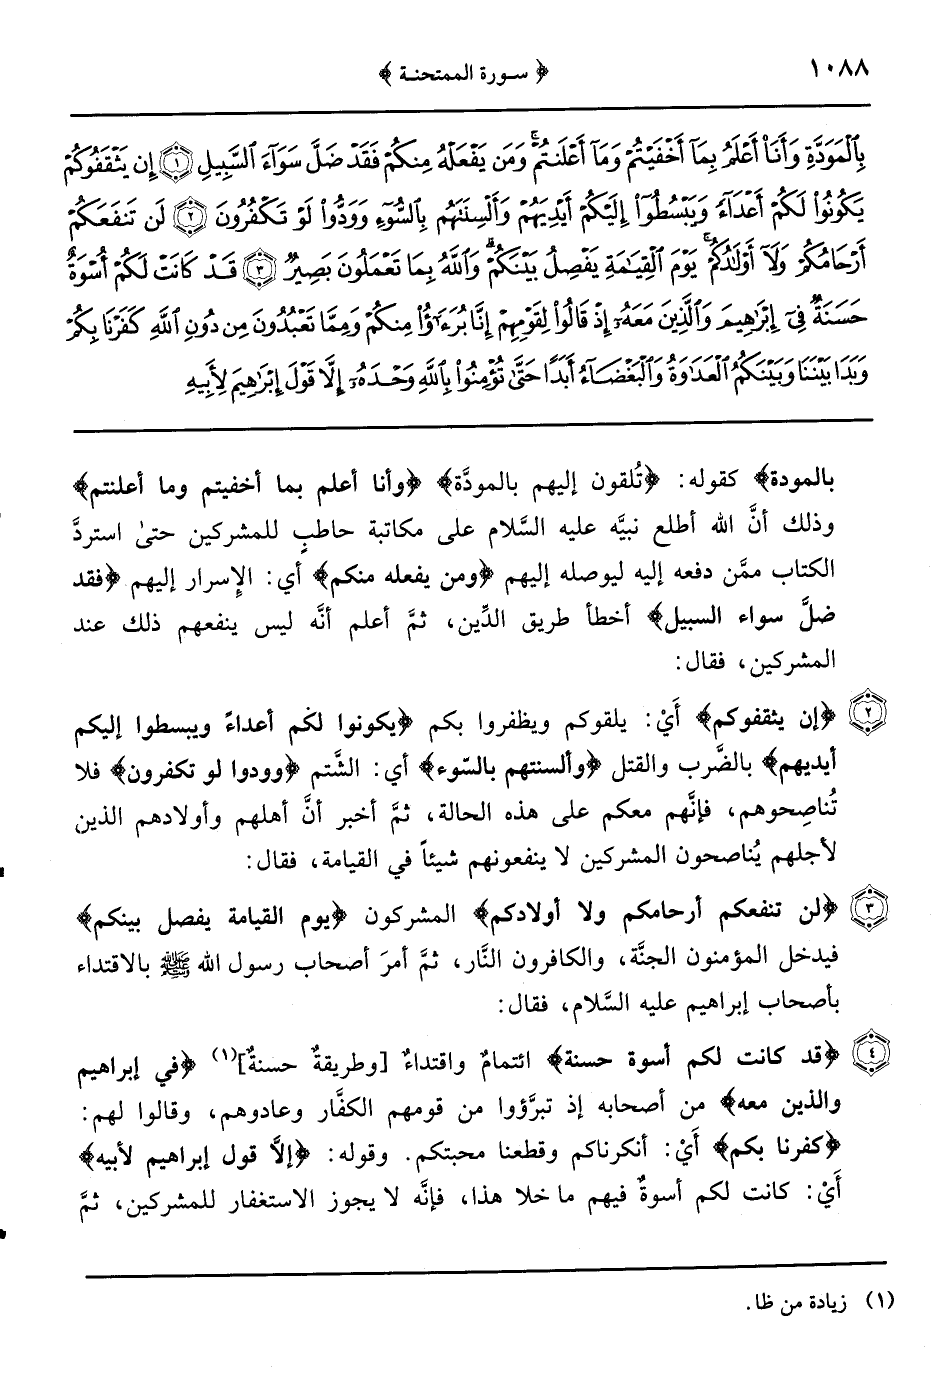 ١٠٨٨
﴿ سورة الممتحنة ﴾
بِٱلْمَوَدَّةِ وَأَنَا۠ أَعْلَمُ بِمَآ أَخْفَيْتُمْ وَمَآ أَعْلَنتُمْ ۚ وَمَن يَفْعَلْهُ مِنكُمْ فَقَدْ ضَلَّ سَوَآءَ ٱلسَّبِيلِ ١ إِن يَثْقَفُوكُمْ
يَكُونُوا۟ لَكُمْ أَعْدَآءً وَيَبْسُطُوٓا۟ إِلَيْكُمْ أَيْدِيَهُمْ وَأَلْسِنَتَهُم بِٱلسُّوٓءِ وَوَدُّوا۟ لَوْ تَكْفُرُونَ ٢ لَن تَنفَعَكُمْ
أَرْحَامُكُمْ وَلَآ أَوْلَٰدُكُمْ ۚ يَوْمَ ٱلْقِيَٰمَةِ يَفْصِلُ بَيْنَكُمْ ۚ وَٱللَّهُ بِمَا تَعْمَلُونَ بَصِيرٌ ٣ قَدْ كَانَتْ لَكُمْ أُسْوَةٌ
حَسَنَةٌ فِىٓ إِبْرَٰهِيمَ وَٱلَّذِينَ مَعَهُۥٓ إِذْ قَالُوا۟ لِقَوْمِهِمْ إِنَّا بُرَءَٰٓؤُا۟ مِنكُمْ وَمِمَّا تَعْبُدُونَ مِن دُونِ ٱللَّهِ كَفَرْنَا بِكُمْ
وَبَدَا بَيْنَنَا وَبَيْنَكُمُ ٱلْعَدَٰوَةُ وَٱلْبَغْضَآءُ أَبَدًا حَتَّىٰ تُؤْمِنُوا۟ بِٱللَّهِ وَحْدَهُۥٓ إِلَّا قَوْلَ إِبْرَٰهِيمَ لِأَبِيهِ
بالمودة﴾ كقوله: ﴿تُلقون إليهم بالمودَّة﴾ ﴿وأنا أعلم بما أخفيتم وما أعلنتم﴾
وذلك أنَّ الله أطلع نبيَّه عليه السَّلام على مكاتبة حاطبٍ للمشركين حتىٰ استردَّ
الكتاب ممَّن دفعه إليه ليوصله إليهم ﴿ومن يفعله منكم﴾ أي: الإِسرار إليهم ﴿فقد
ضلَّ سواء السبيل﴾ أخطأ طريق الدِّين، ثمَّ أعلم أنَّه ليس ينفعهم ذلك عند
المشركين، فقال:
٢ ﴿إن يثقفوكم﴾ أَيْ: يلقوكم ويظفروا بكم ﴿يكونوا لكم أعداءً ويبسطوا إليكم
أيديهم﴾ بالضَّرب والقتل ﴿وألسنتهم بالسّوء﴾ أي: الشَّتم ﴿وودوا لو تكفرون﴾ فلا
تُناصِحوهم، فإنَّهم معكم على هذه الحالة، ثمَّ أخبر أنَّ أهلهم وأولادهم الذين
لأجلهم يُناصحون المشركين لا ينفعونهم شيئاً في القيامة، فقال:
٣ ﴿لن تنفعكم أرحامكم ولا أولادكم﴾ المشركون ﴿يوم القيامة يفصل بينكم﴾
فيدخل المؤمنون الجنَّة، والكافرون النَّار، ثمَّ أمرَ أصحاب رسول الله ﷺ بالاقتداء
بأصحاب إبراهيم عليه السَّلام، فقال:
٤ ﴿قد كانت لكم أسوة حسنة﴾ ائتمامٌ واقتداءٌ [وطريقةٌ حسنةٌ](١) ﴿في إبراهيم
والذين معه﴾ من أصحابه إذ تبرَّؤوا من قومهم الكفَّار وعادوهم، وقالوا لهم:
﴿كفرنا بكم﴾ أَيْ: أنكرناكم وقطعنا محبتكم. وقوله: ﴿إلَّا قول إبراهيم لأبيه﴾
أَيْ: كانت لكم أسوةٌ فيهم ما خلا هذا، فإنَّه لا يجوز الاستغفار للمشركين، ثمَّ
(١) زيادة من ظا.